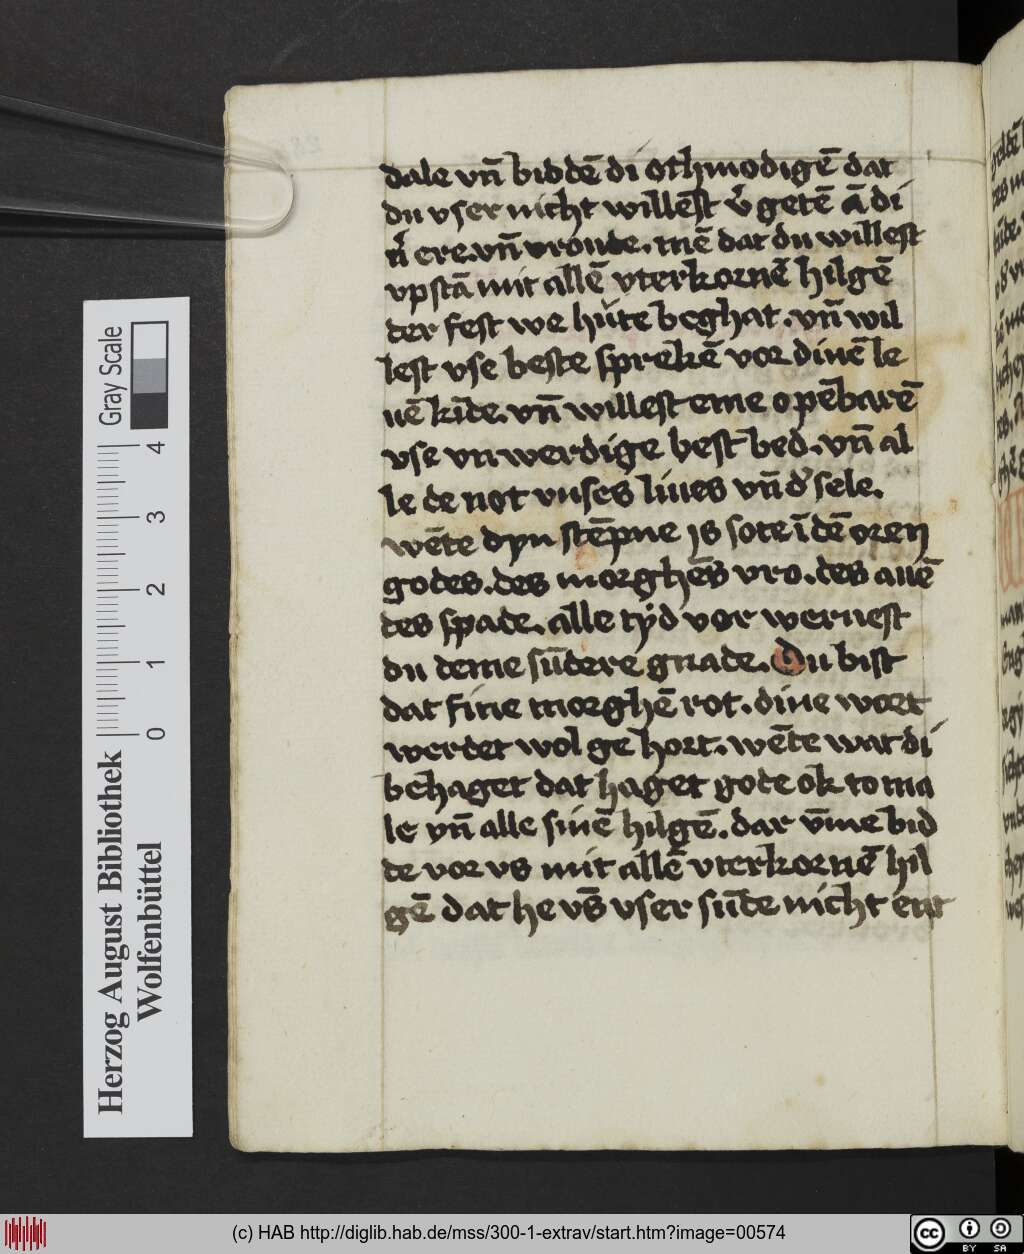 dale vn̄ biddē di othmodigē dat
du vser nicht willēst v̉getē ā di
n̉ ere.vn̄ vroude. mē dat du willest
vpstā mit allē vterkornē hilgē
der fest we hüte beghat.vn̄ wil
lest vse beste sprekē vor dinē le
uē kīde.vn̄ willest eme opēbarē
vse vnwerdige best bed.vn̄ al
le de not vnses liues vn̄ d̉ sele.
wēte dyn stēpne ys sote ī dē oren
godes.des morghēs vro.des auē
des spade.alle tyd vor weruest
du deme sūdere gnade.Du bist
dat fine morghē rot.dine wort
werdet wol ge hort.wēte wat di
behaget dat haget gode ok to ma
le yn̄ alle sinē hilgē.dar v̄me bid
de vor vs mit allē vterkornē hil
gē dat he vs̄ vser sūde nicht ent
Herzog August Bibliothek
Wolfenbüttel
Gray Scale
0 1 2 3 4
(c) HAB http://diglib.hab.de/mss/300-1-extrav/start.htm?image=00574
cc BY SA